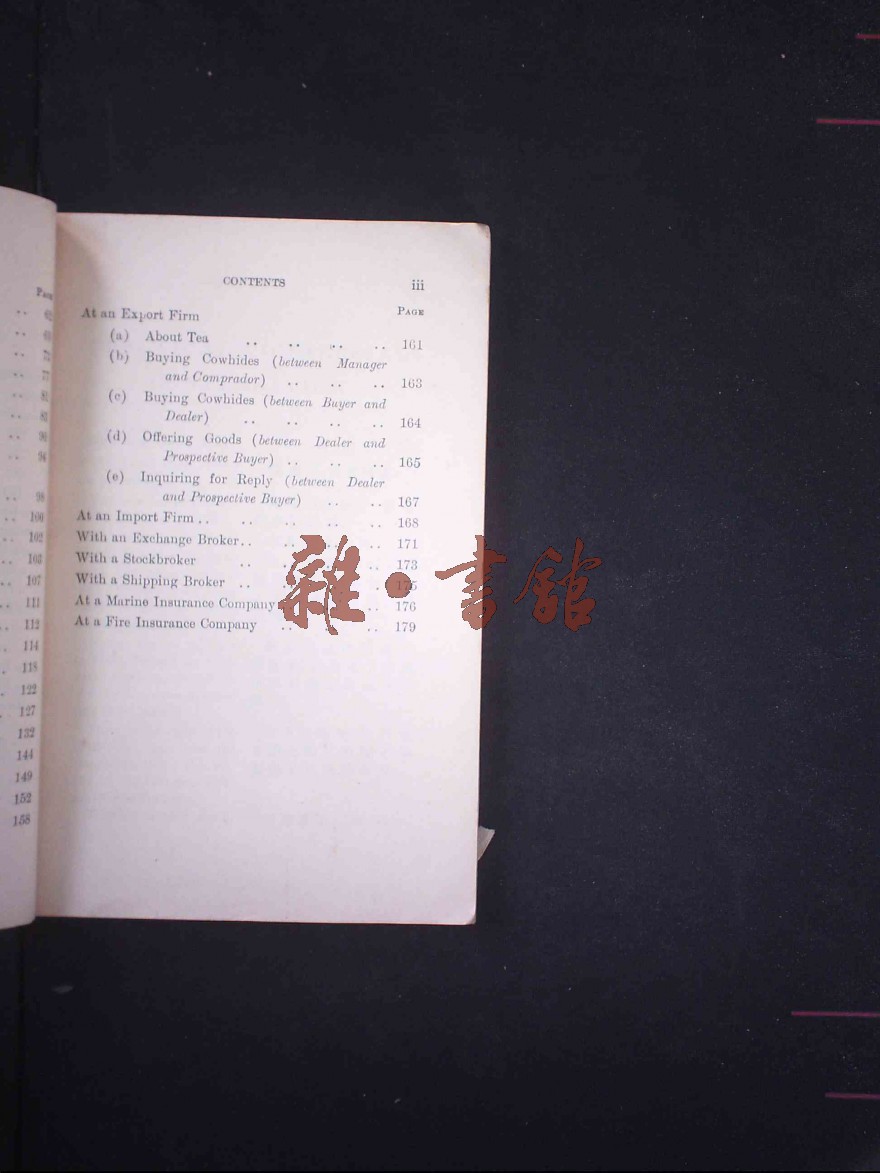 Page
62
73
77
81
94
98
100
102
107
111
112
114
118
122
127
132
144
149
152
158
CONTENTS iii
At an Export Firm PAGE
(a) About Tea .. .. .. .. 161
(b) Buying Cowhides (between Manager
and Comprador) .. .. .. 163
(c) Buying Cowhides (between Buyer and
Dealer) .. .. .. .. 164
(d) Offering Goods (between Dealer and
Prospective Buyer) .. .. .. 165
(e) Inquiring for Reply (between Dealer
and Prospective Buyer) .. .. 167
At an Import Firm .. .. .. .. .. 168
With an Exchange Broker .. .. .. .. 171
With a Stockbroker .. .. .. .. 173
With a Shipping Broker .. .. .. .. 175
At a Marine Insurance Company .. .. 176
At a Fire Insurance Company .. .. .. 179
雜·書館